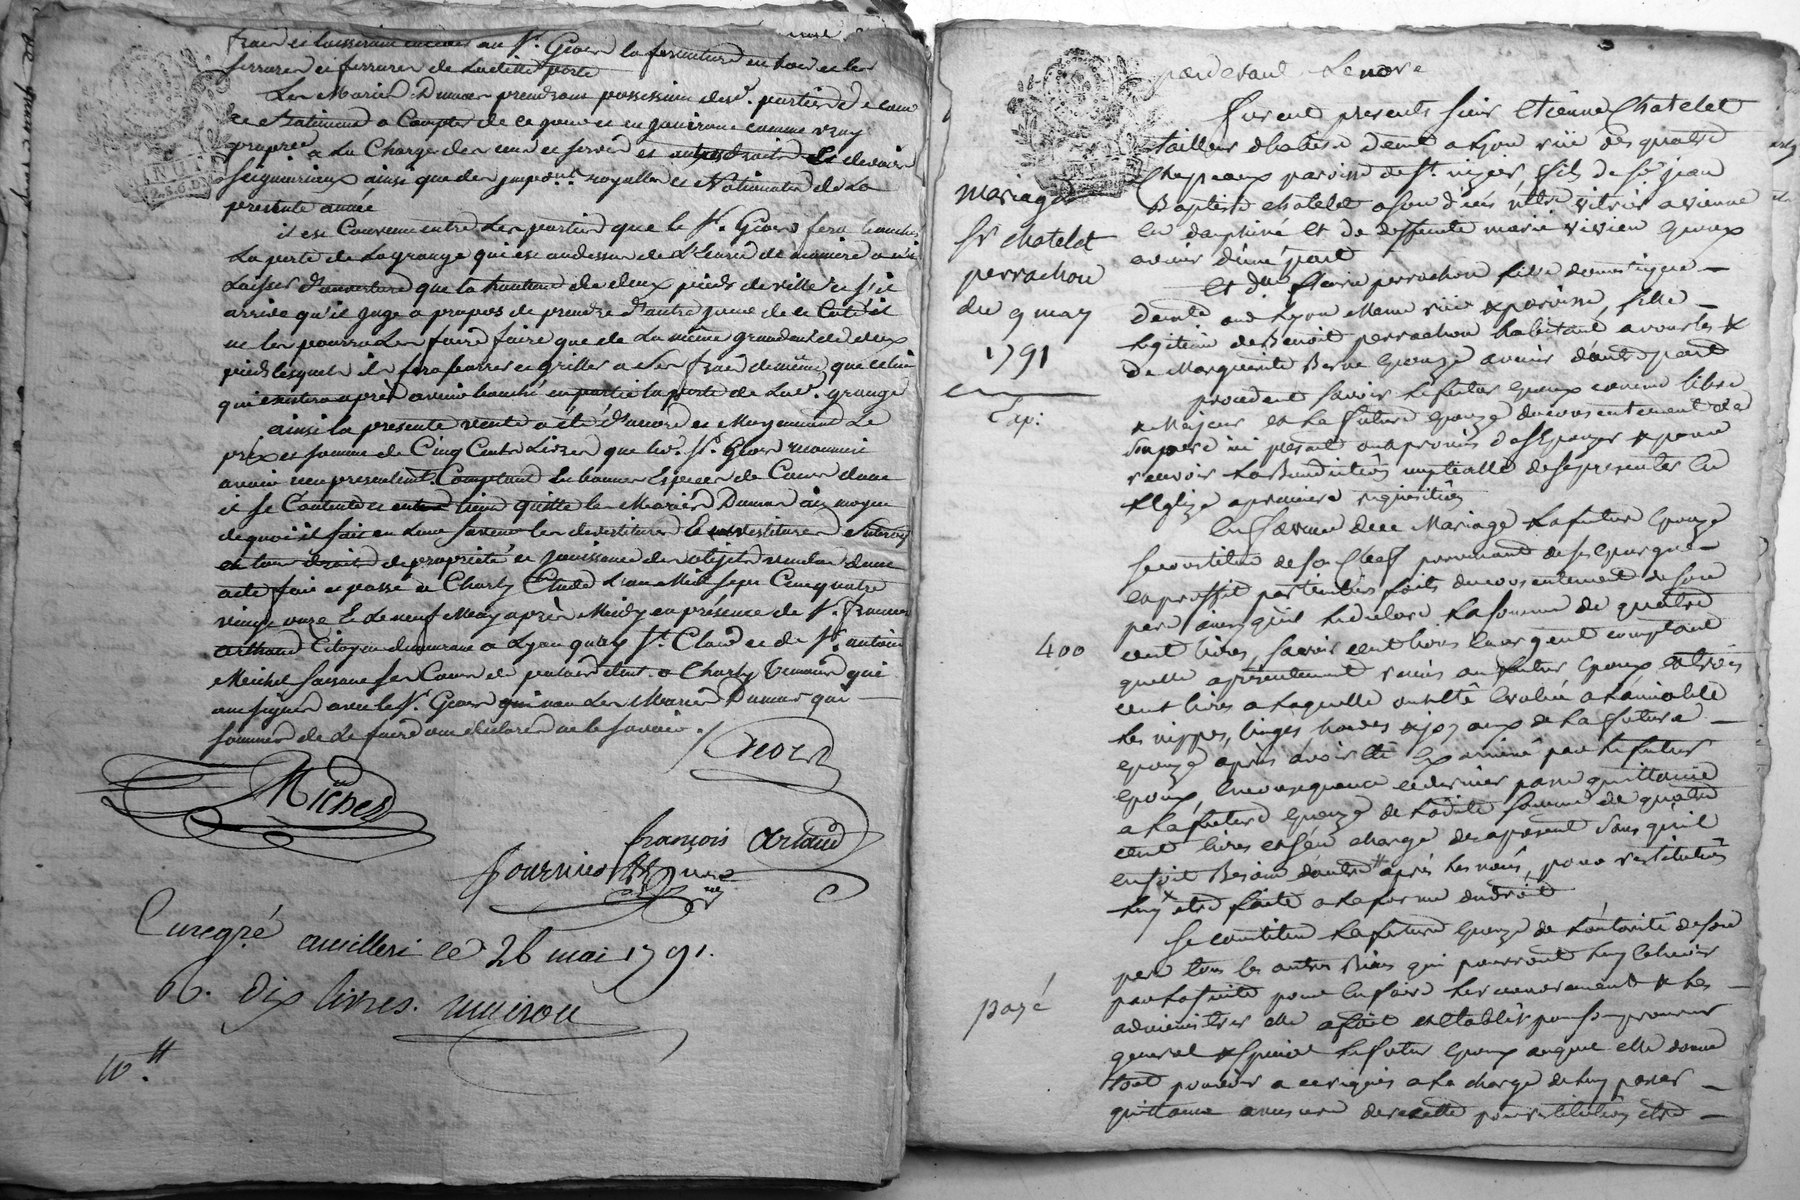 frais et laisseront encore au Sr. Gros la fermeture en bois et les
serrures et ferrures de laditte porte
Les Mariés Dumas prendront possession desd. parties de cour
et Batiment a Compter de ce jour et en jouiront comme vray
propre a La Charge des cens et servis et autres droits et devoirs
Seigneuriaux ainsi que des impo.ons royalles et Nationales de La
presente année
il est Convenu entre Les parties que le Sr. fera boucher
La porte de La grange qui est au dessus de L'Ecurie de maniere a n'y
Laisser d'ouverture que la hauteur de deux pieds de ville et s'il
arrive qu'il juge a propos de prendre d'autre jour de ce Coté il
ne les pourra Les faire faire que de La même grandeur de deux
pieds lesquels il fera ferrer et griller a ses frais de même que celui
qui existera après avoir bouché en partie la porte de Lad. grange
ainsi la presente vente a été d'accord et Moyennant Le
prix et somme de Cinq Cents Livres que led. Sr. reconnoit
avoir reçu presentement Comptant en bonnes Especes de Cours dont
il se Contente et en tient quitte les Mariés Dumas au moyen
de quoi il fait en Leur faveur les devestitures et investitures
en tous droits de propriété et jouissance des objets vendus dont
acte fait et passé a Charly Etude L'an Mil Sept Cent quatre
vingt onze & Le neuf May après Midy en présence de Sr. françois
arthaud Citoyen demeurant a Lyon quay St. Clair et de Sr. antoine
Michel faisant ses Cours de pratique dem.t a Charly temoins qui
ont signé avec le Sr. non Les Mariés Dumas qui
sommés de Le faire ont déclaré ne le savoir.
Michel
françois Artaud
fournier
Enregré. a millery le 26 mai 1791.
R. dix livres.
10.tt
pardevant Le no.re
furent presents sieur Etienne Chatelet
tailleur d'habits demt a Lyon rüe des quatre
Chapeaux paroisse de St. nizier, fils de Sr. jean
Baptiste chatelet a son deces vitrier a vienne
en dauphiné et de deffunte marie vivien Epoux
avenir d'une part
et dlle perrachon fille domestique
demte aud Lyon Meme rüe & paroisse, fille
Legitime de Benoit perrachon habitant a vourles &
de Marguerite Berne Epouze avenir d'autre part
procedent savoir Le futur Epoux comme libre
& Majeur et La future Epouze du consentement de
son pere ici present ont promis de s'Epouzer & pour
recevoir La Benediction nuptialle de se presenter En
L'Eglize a premiere requisition
En faveur dud Mariage La future Epouze
se constitue de son Chef provenant de ses Epargnes
et proffit particuliers faits du consentement de son
pere ainsy qu'il Le declare La somme de quatre
cent livres, savoir cent livres En argent comptant
quelle a presentement remis au futur Epoux et trois
cent livres a Laquelle ont Eté Evalué a L'amiable
Les nippes, linges hardes & joyaux de La future
Epouze après avoir Eté Examiné par Le futur
Epoux, En consequence ce dernier passe quittance
a La future Epouze de Ladite somme de quatre
cent livres et s'en charge des apresent sans qu'il
en soit Besoin d'autre après Les noces, pour restitution
Luy etre faite a La forme du droit
Se constitue La future Epouze de L'autorité de son
pere tous les autres Biens qui pourront Luy Echeoir
par La suite pour En faire Les recouvrement & Les
administrer elle a fait et Etablit pour son procureur
general & special Le futur Epoux auquel elle donne
tout pouvoir a ce requis a La charge de Luy passer
quittance a mesure de recette pour restitution etre
mariage
Sr chatelet
perrachon
du 9 may
1791
Exp:
400
payé